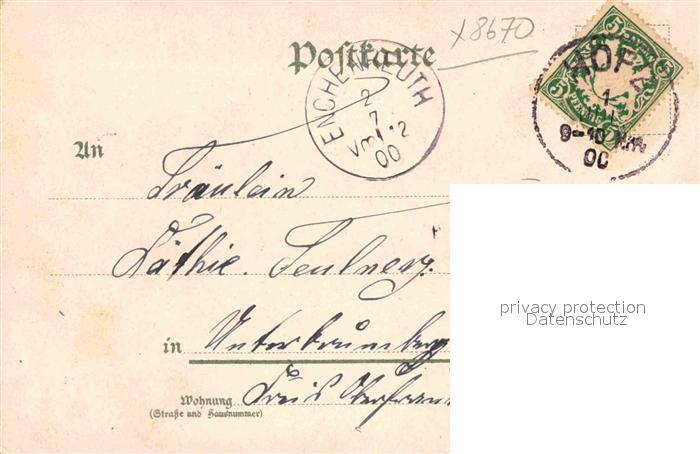 x8670
Postkarte
ENCHENREUTH
2
7
Vm 12
00
HOF 2
1
9-10 Vm
00
5
5
5
An
Fräulein
Käthie
in
Unterbrumberg
Wohnung
(Straße und Hausnummer)
Kreis Oberfran
privacy protection
Datenschutz